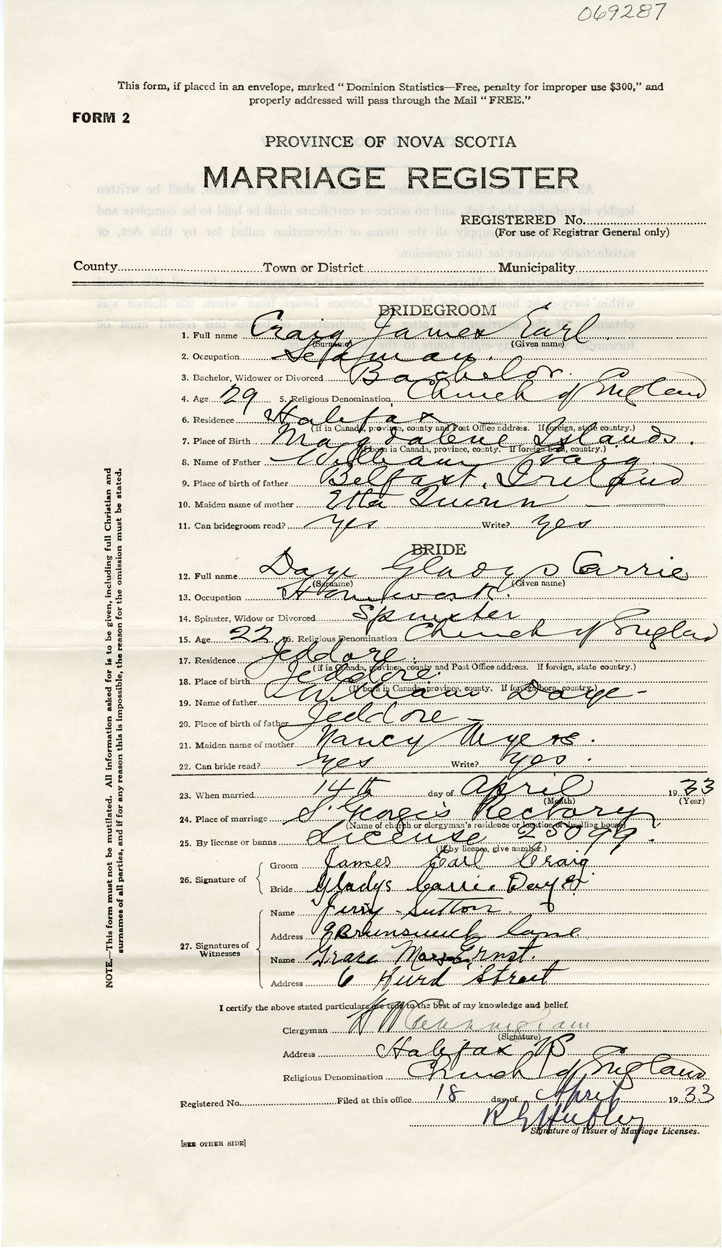 069287
This form, if placed in an envelope, marked "Dominion Statistics—Free, penalty for improper use $300," and
properly addressed will pass through the Mail "FREE."
FORM 2
PROVINCE OF NOVA SCOTIA
MARRIAGE REGISTER
REGISTERED No.
(For use of Registrar General only)
County Town or District Municipality
BRIDEGROOM
1. Full name Craig James Earl
(Surname) (Given name)
2. Occupation Seaman.
3. Bachelor, Widower or Divorced Bachelor.
4. Age 29 5. Religious Denomination Church of England
6. Residence Halifax
(If in Canada, province, county and Post Office address. If foreign, state country.)
7. Place of Birth Magdalene Islands.
(If born in Canada, province, county. If foreign born, country.)
8. Name of Father William Craig
9. Place of birth of father Belfast, Ireland
10. Maiden name of mother Etta Quinn
11. Can bridegroom read? Yes Write? Yes
BRIDE
12. Full name Daye Gladys Carrie
(Surname) (Given name)
13. Occupation Housework.
14. Spinster, Widow or Divorced Spinster
15. Age 22 16. Religious Denomination Church of England
17. Residence Jeddore.
(If in Canada, province, county and Post Office address. If foreign, state country.)
18. Place of birth Jeddore.
(If born in Canada, province, county. If foreign born, country.)
19. Name of father William Daye-
20. Place of birth of father Jeddore -
21. Maiden name of mother Nancy Myers.
22. Can bride read? Yes Write? Yes.
23. When married 14th day of April 1933
(Month) (Year)
24. Place of marriage St George's Rectory
(Name of church or clergyman's residence or location of dwelling house)
25. By license or banns License 25099.
(If by license, give number.)
26. Signature of Groom James Earl Craig
Bride Gladys Carrie Daye
27. Signatures of Witnesses
Name Jerry Sutton.
Address Brunswick Lane
Name Grace Ernst.
Address 6 Hurd Street
I certify the above stated particulars are true to the best of my knowledge and belief.
Clergyman Cunningham
(Signature)
Address Halifax NS
Religious Denomination Church of England
Registered No. Filed at this office 18 day of April 1933
Signature of Issuer of Marriage Licenses.
[SEE OTHER SIDE]
NOTE.—This form must not be mutilated. All information asked for is to be given, including full Christian and
surnames of all parties, and if for any reason this is impossible, the reason for the omission must be stated.